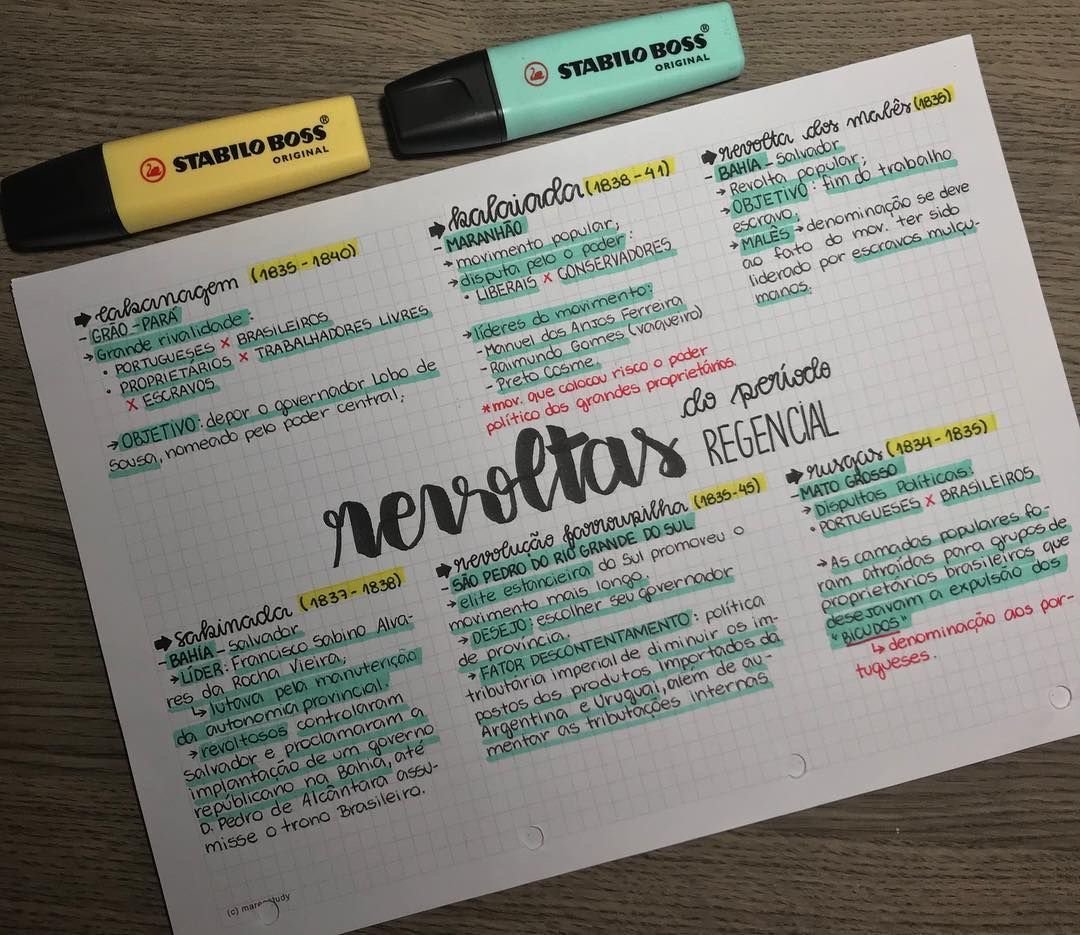 STABILO BOSS®
ORIGINAL
STABILO BOSS®
ORIGINAL
cabanagem (1835-1840)
- GRÃO-PARÁ
→ Grande rivalidade:
• PORTUGUESES x BRASILEIROS
• PROPRIETÁRIOS x TRABALHADORES LIVRES
x ESCRAVOS
→ OBJETIVO: depor o governador Lobo de
Sousa, nomeado pelo poder central;
balaiada (1838-41)
MARANHÃO
→ movimento popular;
→ disputa pelo o poder:
• LIBERAIS x CONSERVADORES
→ líderes do movimento:
- Manuel dos Anjos Ferreira
- Raimundo Gomes (vaqueiro)
- Preto Cosme.
*mov. que colocou risco o poder
político dos grandes proprietários.
revolta dos malês (1835)
- BAHIA - Salvador
→ Revolta popular;
→ OBJETIVO: fim do trabalho
escravo.
→ MALÊS → denominação se deve
ao fato do mov. ter sido
liderado por escravos mulçu-
manos.
revoltas do período
REGENCIAL
sabinada (1837-1838)
- BAHIA - Salvador
→ LÍDER: Francisco Sabino Alva-
res da Rocha Vieira;
↳ lutava pela manutenção
da autonomia provincial.
→ revoltosos controlaram
Salvador e proclamaram a
implantação de um governo
repúblicano na Bahia, até
D. Pedro de Alcântara assu-
misse o trono Brasileiro.
revolução farroupilha (1835-45)
- SÃO PEDRO DO RIO GRANDE DO SUL
→ elite estancieira do Sul promoveu o
movimento mais longo.
→ DESEJO: escolher seu governador
de província.
→ FATOR DESCONTENTAMENTO: política
tributária imperial de diminuir os im-
postos dos produtos importados da
Argentina e Uruguai, além de au-
mentar as tributações internas.
rusgas (1834-1835)
- MATO GROSSO
→ Disputas Políticas:
• PORTUGUESES x BRASILEIROS
→ As camadas populares fo-
ram atraídas para grupos de
proprietários brasileiros que
desejavam a expulsão dos
"BICUDOS"
↳ denominação aos por-
tugueses.
(c)